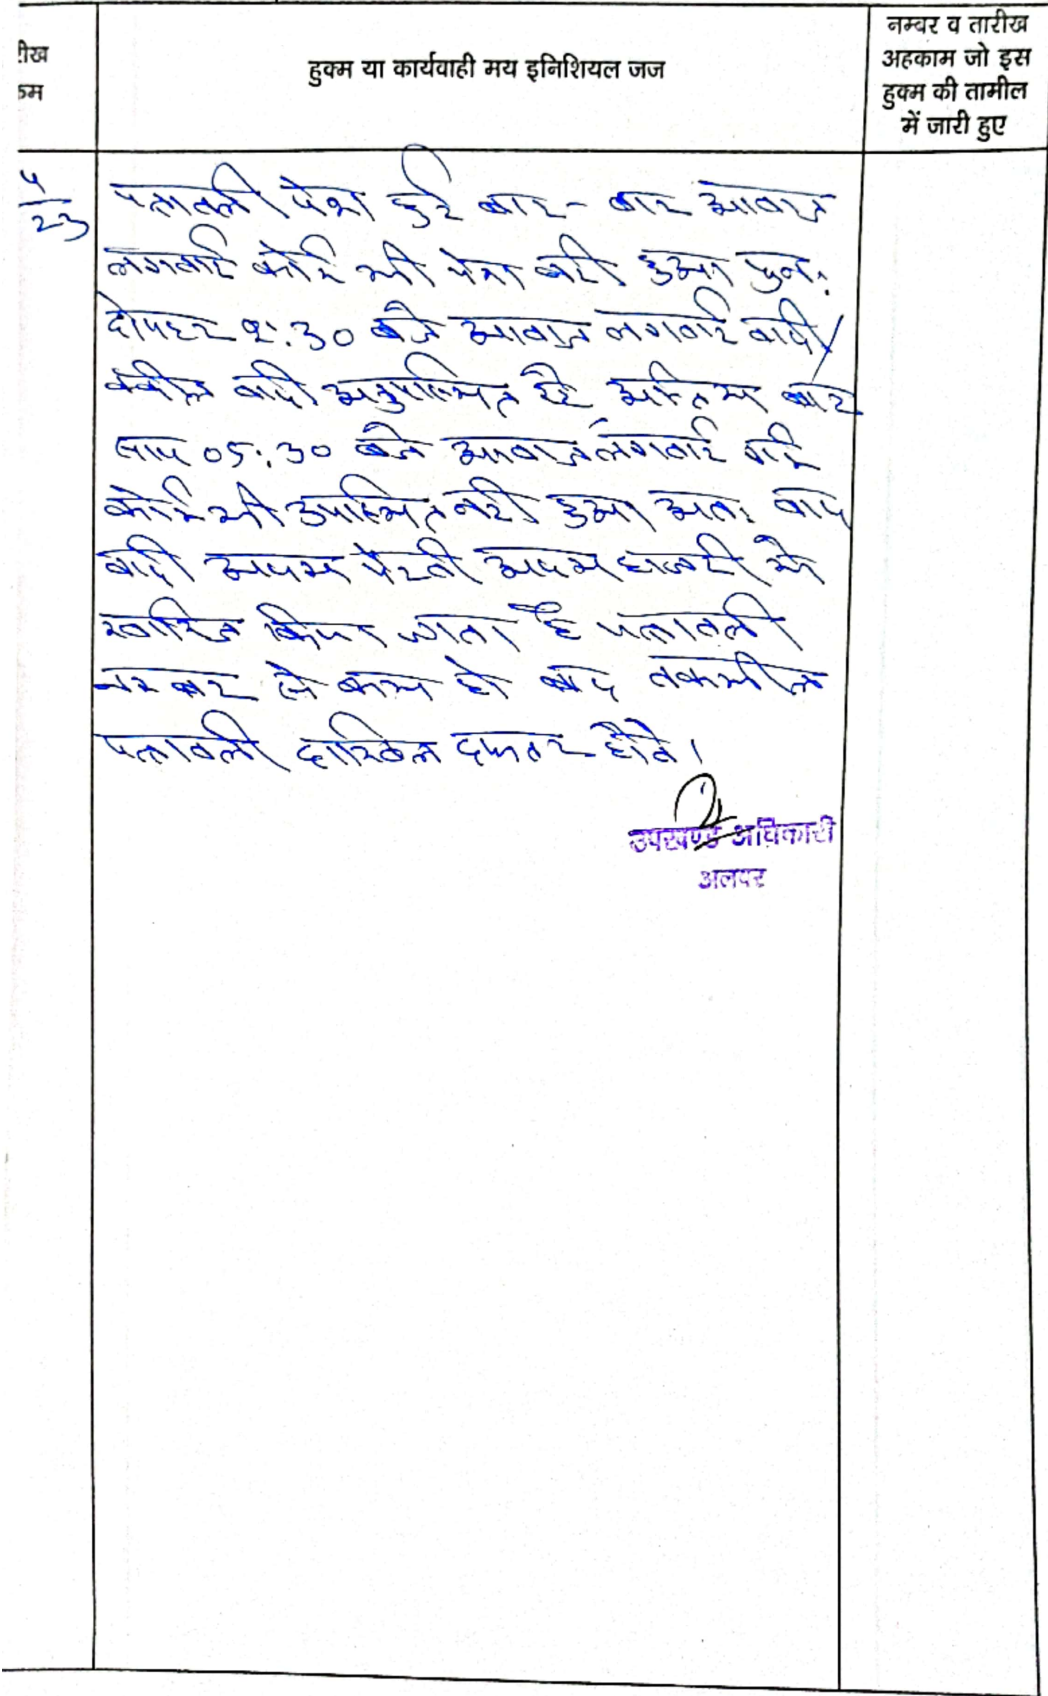 रीख
कम
हुक्म या कार्यवाही मय इनिशियल जज
नम्बर व तारीख
अहकाम जो इस
हुक्म की तामील
में जारी हुए
23
पत्रावली पेश हुई बार-बार आवाज
लगवाई कोई भी पेश नही हुआ पुनः
दोपहर 2:30 बजे आवाज लगवाई वादी/
वकील वादी अनुपस्थित है अन्तिम बार
सायं 05:30 बजे आवाज लगवाई गई
कोई भी उपस्थित नही हुआ अतः वाद
वादी अदम पैरवी अदम हाजरी मे
खारिज किया जाता है पत्रावली
नम्बर से कम हो बाद तकमील
पत्रावली दाखिल दफ्तर होवे।
उपखण्ड अधिकारी
अलवर